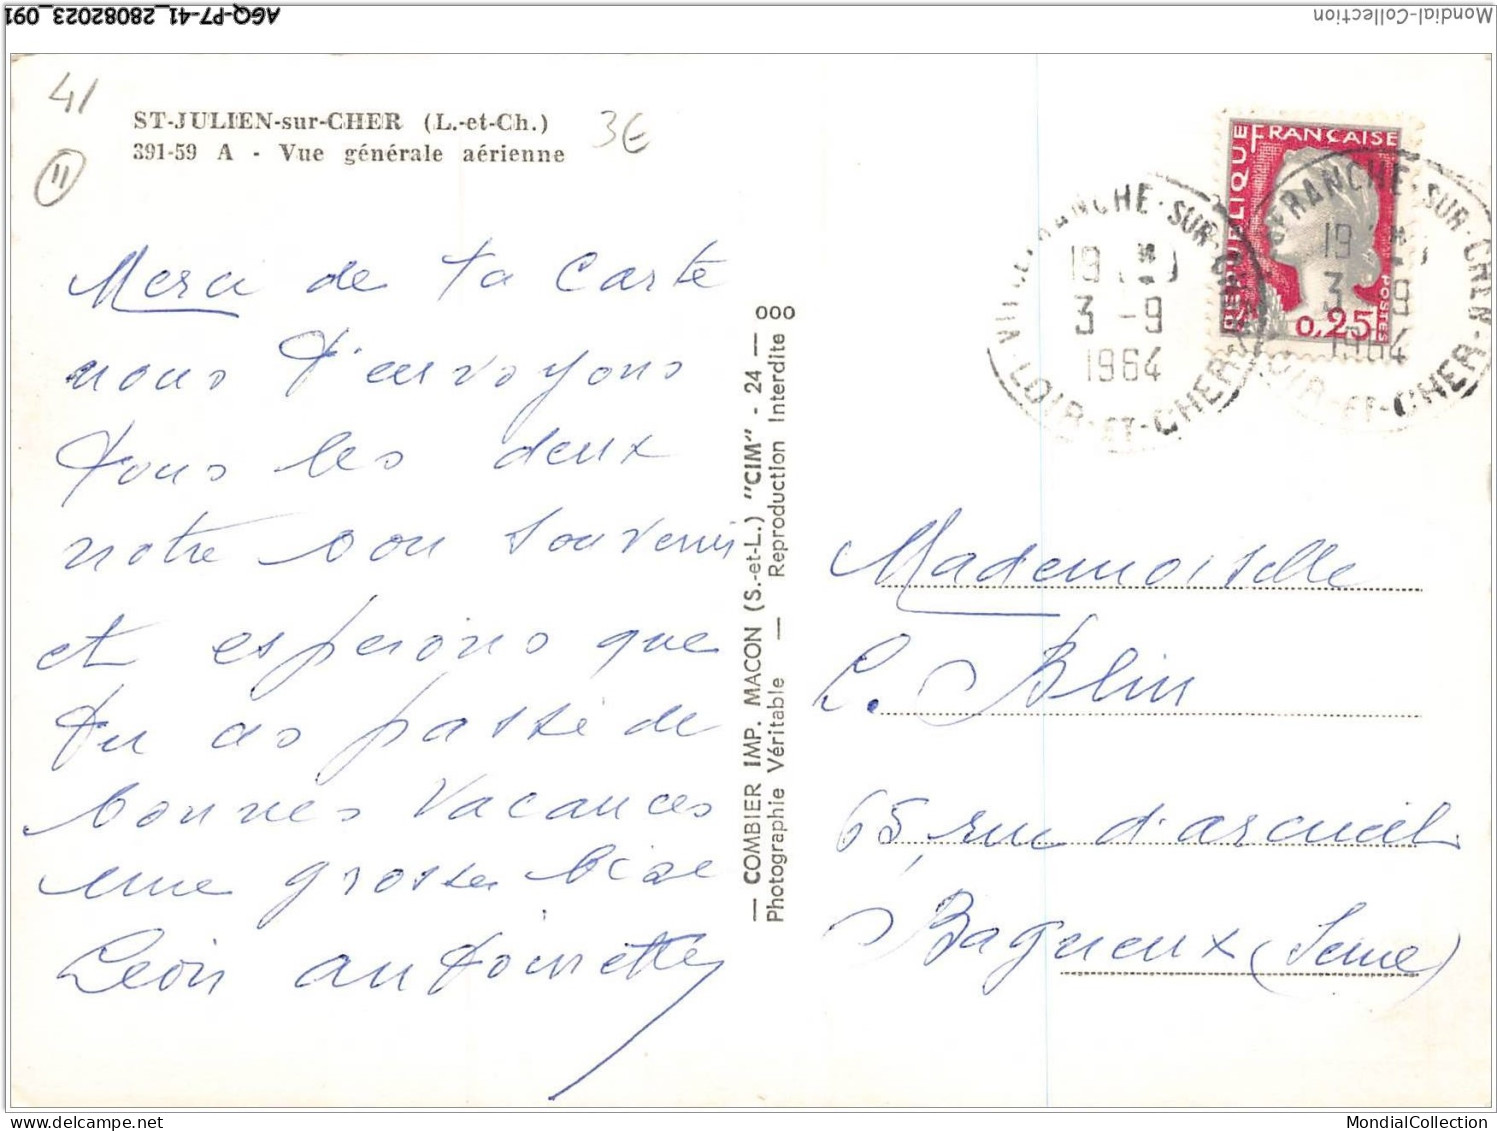 AGQ-P7-41_28082023_091
Mondial-Collection
41
11
ST-JULIEN-sur-CHER (L.-et-Ch.)
391-59 A - Vue générale aérienne
3€
Merci de ta Carte
nous t'envoyons
tous les deux
notre bon souvenir
et esperions que
tu as passé de
bonnes vacances
une grosse bise
Leon antoinette
000
— COMBIER IMP. MACON (S.-et-L.) "CIM" - 24 —
Photographie Véritable — Reproduction Interdite
REPUBLIQUE FRANÇAISE
POSTES
0,25
VILLEFRANCHE-SUR-CHER
19
3 -9
1964
LOIR-ET-CHER
FRANCHE-SUR-CHER
19
3 9
1964
LOIR-ET-CHER
Mademoiselle
L. Blin
65, rue d'arcueil
Bagneux (Seine)
MondialCollection